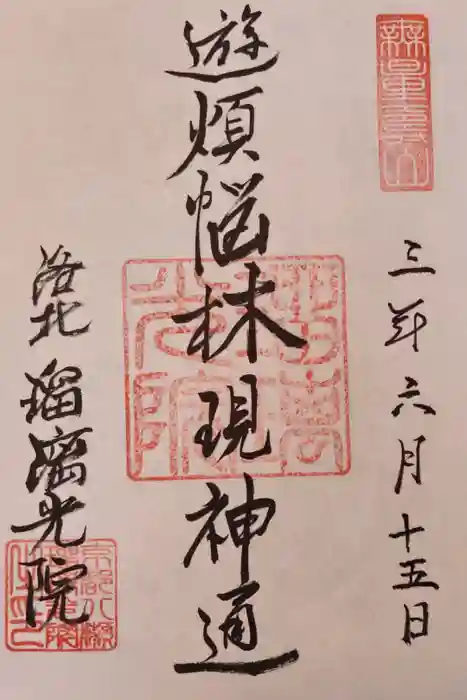 無量寿山
三年六月十五日
遊煩悩林現神通
洛北 瑠璃光院